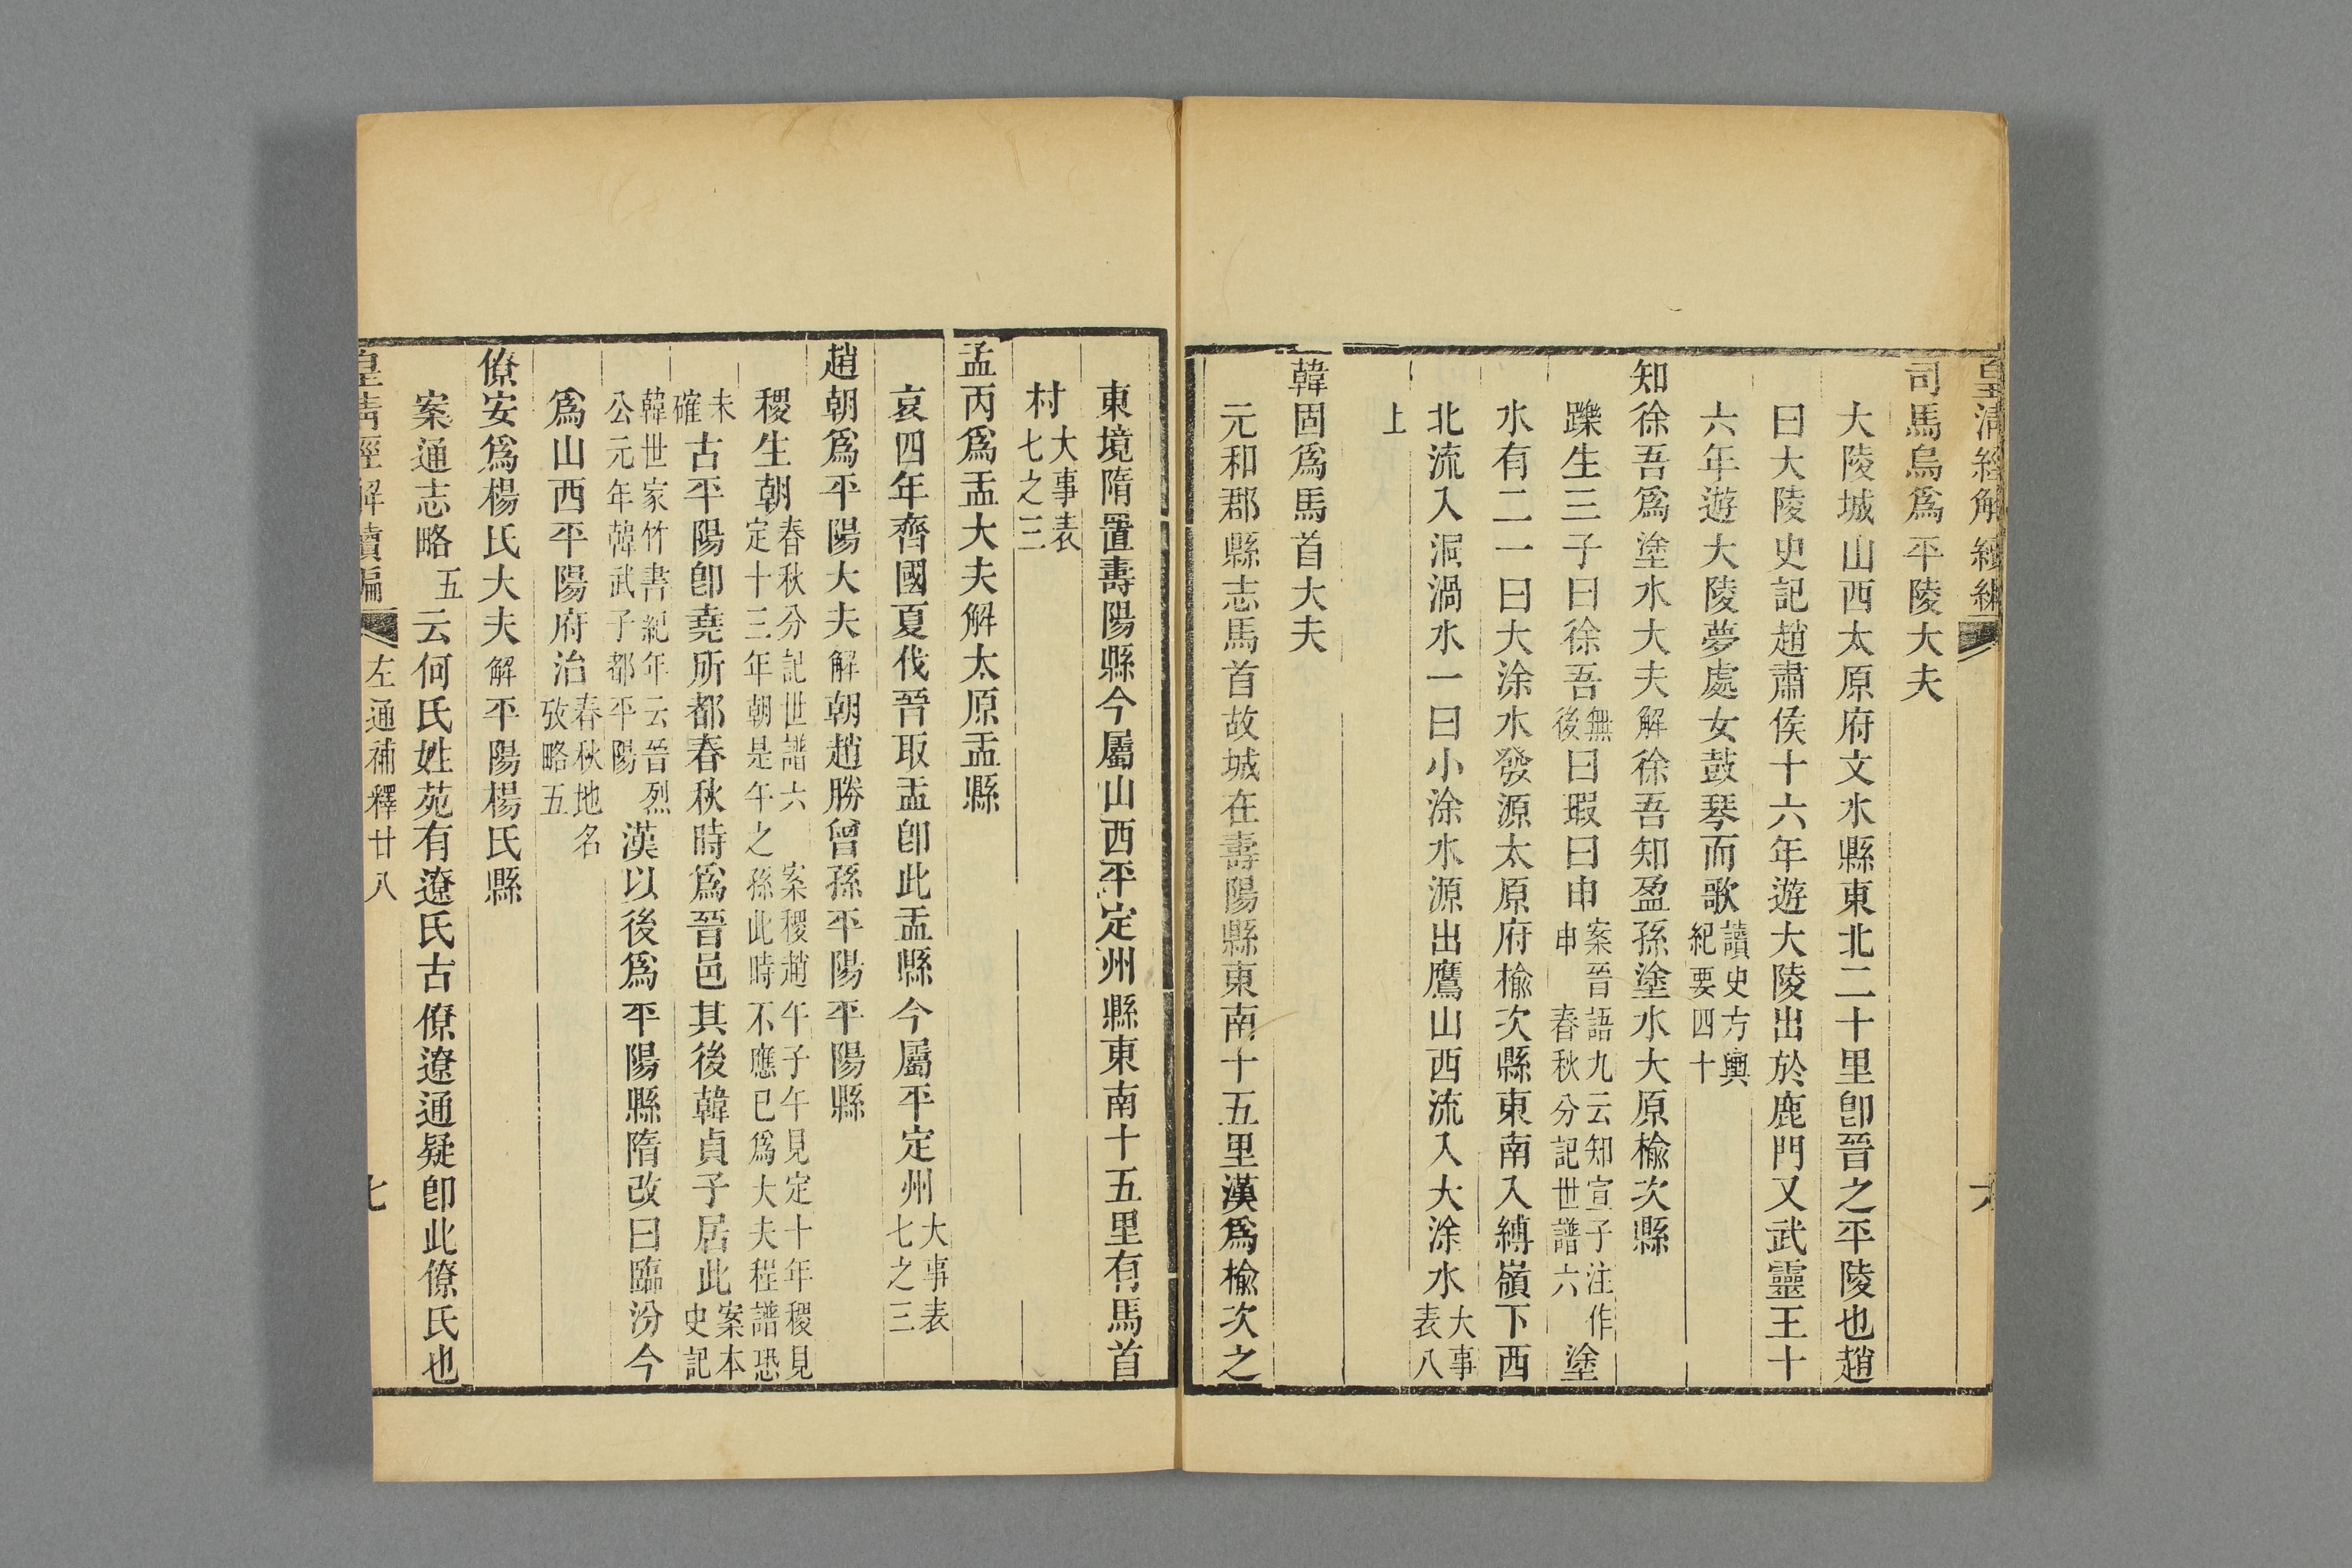 皇清經解續編
六
司馬烏爲平陵大夫
大陵城山西太原府文水縣東北二十里卽晉之平陵也趙
曰大陵史記趙肅侯十六年遊大陵出於鹿門又武靈王十
六年遊大陵夢處女鼓琴而歌讀史方輿紀要四十
知徐吾爲塗水大夫解徐吾知盈孫塗水大原楡次縣
躒生三子曰徐吾無後曰瑕曰申案晉語九云知宣子注作申 春秋分記世譜六塗
水有二一曰大涂水發源太原府楡次縣東南入縛嶺下西
北流入洞渦水一曰小涂水源出鷹山西流入大涂水大事表八
上
韓固爲馬首大夫
元和郡縣志馬首故城在壽陽縣東南十五里漢爲楡次之
東境隋置壽陽縣今屬山西平定州縣東南十五里有馬首
村大事表七之三
孟丙爲盂大夫解太原盂縣
哀四年齊國夏伐晉取盂卽此盂縣今屬平定州大事表七之三
趙朝爲平陽大夫解朝趙勝曾孫平陽平陽縣
稷生朝春秋分記世譜六 案稷趙午子午見定十年稷見定十三年朝是午之孫此時不應已爲大夫程譜恐
未確古平陽卽堯所都春秋時爲晉邑其後韓貞子居此案本史記
韓世家竹書紀年云晉烈公元年韓武子都平陽漢以後爲平陽縣隋改曰臨汾今
爲山西平陽府治春秋地名攷略五
僚安爲楊氏大夫解平陽楊氏縣
案通志略五云何氏姓苑有遼氏古僚遼通疑卽此僚氏也
皇淸經解續編
左通補釋廿八
七